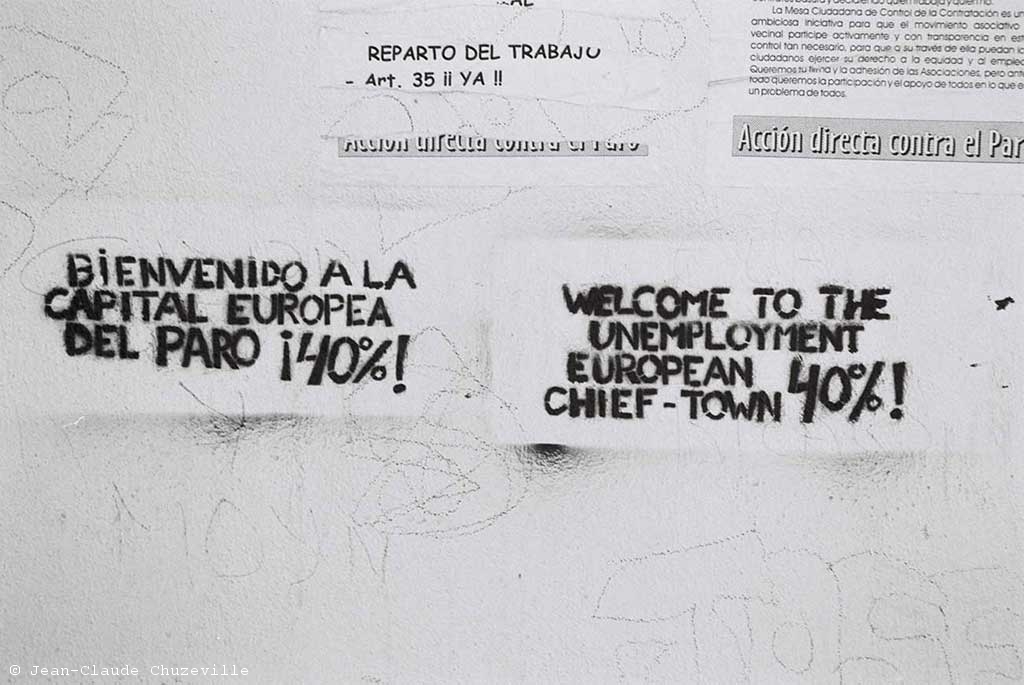 AL
REPARTO DEL TRABAJO
- Art. 35 ¡¡ YA !!
Acción directa contra el Paro
La Mesa Ciudadana de Control de la Contratación es un
ambiciosa iniciativa para que el movimiento asociativo
vecinal participe activamente y con transparencia en est
control tan necesario, para que a su través de ella puedan lo
ciudadanos ejercer su derecho a la equidad y al emplec
Queremos tu firma y la adhesión de las Asociaciones, pero ante
todo queremos la participación y el apoyo de todos en lo que e
un problema de todos.
Acción directa contra el Par
BiENVENIDO A LA
CAPITAL EUROPEA
DEL PARO ¡40%!
WELCOME TO THE
UNEMPLOYMENT
EUROPEAN
CHIEF-TOWN 40%!
© Jean-Claude Chuzeville